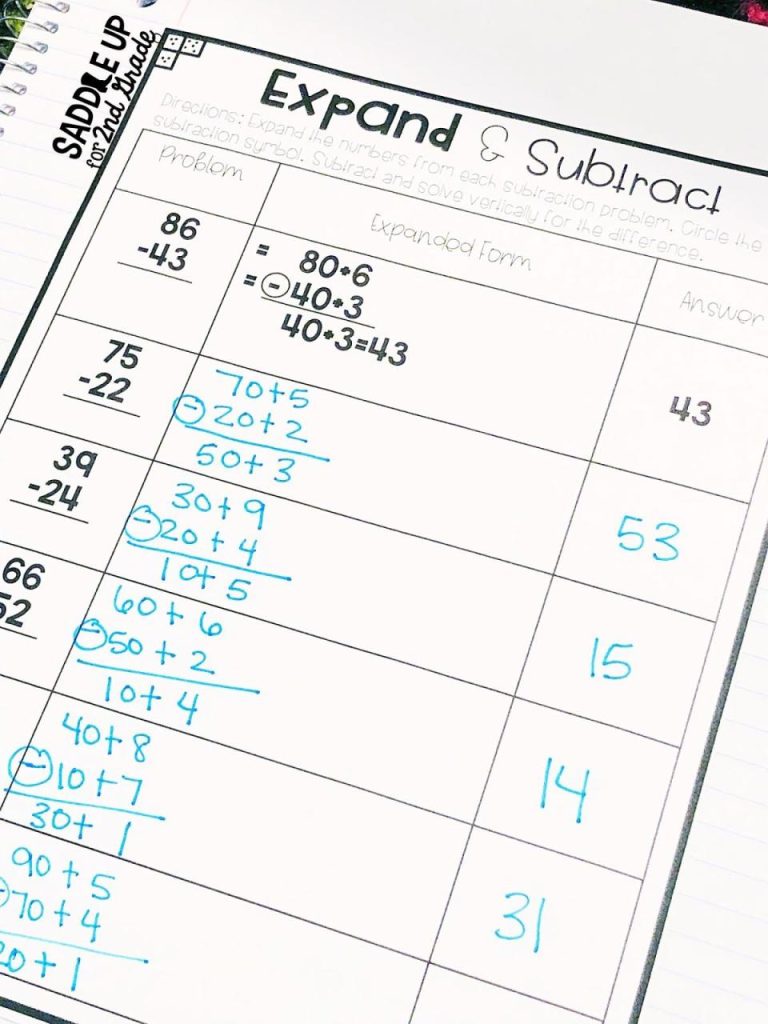 SADDLE UP
for 2nd Grade
Expand & Subtract
Directions: Expand the numbers from each subtraction problem. Circle the
subtraction symbol. Subtract and solve vertically for the difference.
Problem
Expanded Form
Answer
86
-43
= 80+6
= -40+3
40+3=43
43
75
-22
70+5
-20+2
50+3
53
39
-24
30+9
-20+4
10+5
15
66
52
60+6
-50+2
10+4
14
40+8
-10+7
30+1
31
90+5
-70+4
20+1